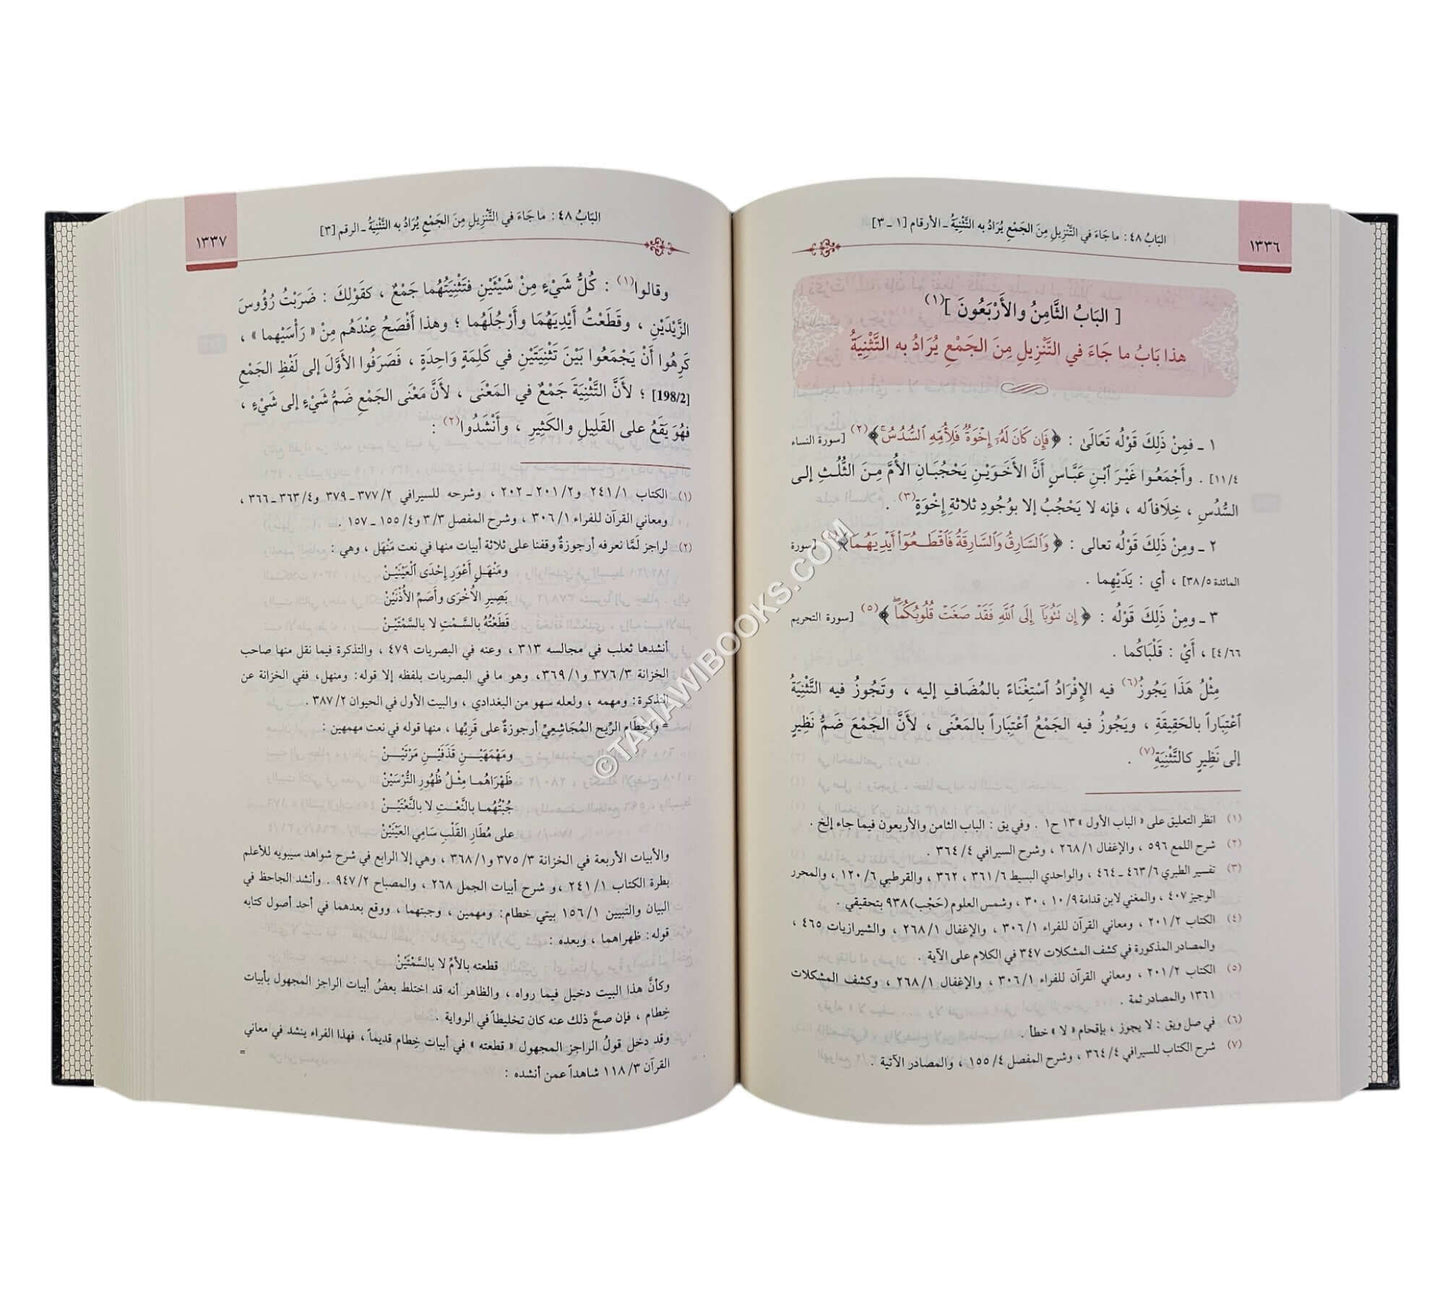 ١٣٣٦
البَابُ ٤٨ : ما جَاءَ في التَّنْزِيلِ مِنَ الجَمْعِ يُرَادُ به التَّثْنِيَةُ ـ الأرقام [١ ـ ٣]
[ البَابُ الثَّامِنُ والأَرْبَعُونَ ](١)
هذا بَابُ ما جَاءَ في التَّنْزِيلِ مِنَ الجَمْعِ يُرَادُ به التَّثْنِيَةُ
١ ـ فمِنْ ذَلِكَ قَوْلُه تَعَالَىٰ : ﴿فَإِن كَانَ لَهُۥٓ إِخْوَةٌ فَلِأُمِّهِ ٱلسُّدُسُ﴾(٢) [سورة النساء
١١/٤] . وأَجْمَعُوا غَيْرَ ٱبْنِ عَبَّاسٍ أَنَّ الأَخَوَيْنِ يَحْجُبَانِ الأُمَّ مِنَ الثُّلُثِ إلى
السُّدُسِ ، خِلَافاً له ، فإنه لا يَحْجُبُ إلا بوُجُودِ ثلاثةِ إخْوَةٍ(٣) .
٢ ـ ومِنْ ذَلِكَ قَوْلُه تعالى : ﴿ وَٱلسَّارِقُ وَٱلسَّارِقَةُ فَٱقْطَعُوٓا۟ أَيْدِيَهُمَا﴾ [سورة
المائدة ٣٨/٥] ، أي : يَدَيْهِما .
٣ ـ ومِنْ ذَلِكَ قَوْلُه : ﴿ إِن تَتُوبَآ إِلَى ٱللَّهِ فَقَدْ صَغَتْ قُلُوبُكُمَا﴾(٥) [سورة التحريم
٤/٦٦] ، أَيْ : قَلْبَاكُما .
مِثْلُ هَذَا يَجُوزُ(٦) فيه الإِفْرَادُ ٱسْتِغْنَاءً بالمُضَافِ إليه ، وتَجُوزُ فيه التَّثْنِيَةُ
ٱعْتِبَاراً بالحَقِيقَةِ ، ويَجُوزُ فيه الجَمْعُ ٱعْتِبَاراً بالمَعْنَى ، لأَنَّ الجَمْعَ ضَمُّ نَظِيرٍ
إلى نَظِيرٍ كالتَّثْنِيَةِ(٧) .
(١) انظر التعليق على «الباب الأول» ١٣ ح١ . وفي يق : الباب الثامن والأربعون فيما جاء إلخ .
(٢) شرح اللمع ٥٩٦ ، والإغفال ٢٦٨/١ ، وشرح السيرافي ٣٦٤/٤ .
(٣) تفسير الطبري ٤٦٣/٦ ـ ٤٦٤ ، والواحدي البسيط ٣٦١/٦ ، ٣٦٢ ، والقرطبي ١٢٠/٦ ، والمحرر
الوجيز ٤٠٧ ، والمغني لابن قدامة ١٠/٩ ، ٣٠ ، وشمس العلوم (حَجْب) ٩٣٨ بتحقيقي .
(٤) الكتاب ٢٠١/٢ ، ومعاني القرآن للفراء ٣٠٦/١ ، والإغفال ٢٦٨/١ ، والشيرازيات ٤٦٥ ،
والمصادر المذكورة في كشف المشكلات ٣٤٧ في الكلام على الآية .
(٥) الكتاب ٢٠١/٢ ، ومعاني القرآن للفراء ٣٠٦/١ ، والإغفال ٢٦٨/١ ، وكشف المشكلات
١٣٦١ والمصادر ثمة .
(٦) في صل ويق : لا يجوز ، بإقحام « لا » خطأ .
(٧) شرح الكتاب للسيرافي ٣٦٤/٤ ، وشرح المفصل ١٥٥/٤ ، والمصادر الآتية .
البَابُ ٤٨ : ما جَاءَ في التَّنْزِيلِ مِنَ الجَمْعِ يُرَادُ به التَّثْنِيَةُ ـ الرقم [٣]
١٣٣٧
وقالوا(١) : كُلُّ شَيْءٍ مِنْ شَيْئَيْنِ فتَثْنِيَتُهُما جَمْعٌ ، كقَوْلِكَ : ضَرَبْتُ رُؤُوسَ
الزَّيْدَيْنِ ، وقَطَعْتُ أَيْدِيَهُمَا وأَرْجُلَهُما ؛ وهذا أَفْصَحُ عِنْدَهُم مِنْ « رَأْسَيْهِما » ،
كَرِهُوا أَنْ يَجْمَعُوا بَيْنَ تَثْنِيَتَيْنِ في كَلِمَةٍ وَاحِدَةٍ ، فَصَرَفُوا الأَوَّلَ إلى لَفْظِ الجَمْعِ
[198/2] ؛ لأَنَّ التَّثْنِيَةَ جَمْعٌ في المَعْنَى ، لأَنَّ مَعْنَى الجَمْعِ ضَمُّ شَيْءٍ إلى شَيْءٍ ،
فهُوَ يَقَعُ على القَلِيلِ والكَثِيرِ ، وأَنْشَدُوا(٢) :
(١) الكتاب ٢٤١/١ و٢٠١/٢ ـ ٢٠٢ ، وشرحه للسيرافي ٣٧٧/٢ ـ ٣٧٩ و٣٦٣/٤ ـ ٣٦٦ ،
ومعاني القرآن للفراء ٣٠٦/١ ، وشرح المفصل ٣/٣ و١٥٥/٤ ـ ١٥٧ .
(٢) لراجز لَمَّا نعرفه أرجوزةٌ وقفنا على ثلاثة أبيات منها في نعت مَنْهَل ، وهي :
ومَنْهَـلٍ أَعْوَر إحْدَى العَيْنَيْـنْ
بَصِيرِ الأُخْرَى وأصَمِّ الأُذْنَيْنْ
قَطَعْتُهُ بالسَّمْتِ لا بالسَّمْتَيْـنْ
أنشدها ثعلب في مجالسه ٣١٣ ، وعنه في البصريات ٤٧٩ ، والتذكرة فيما نقل منها صاحب
الخزانة ٣٧٦/٣ و٣٦٩/١، وهو ما في البصريات بلفظه إلا قوله: ومنهل، ففي الخزانة عن
التذكرة: ومهمه ، ولعله سهو من البغدادي ، والبيت الأول في الحيوان ٣٨٧/٢ .
= ولخِطام الرِّيح المُجَاشِعِيِّ أرجوزةٌ على قَرِيِّها ، منها قوله في نعت مهمهين :
ومَهْمَهَيْـنِ قَذَفَيْـنِ مَرْتَيْـنْ
ظَهْرَاهُمـا مِثْـلُ ظُهُورِ التُّرْسَيْنْ
جُبْتُهُمـا بالنَّعْـتِ لا بالنَّعْتَيْـنْ
على مُطَارِ القَلْبِ سَامِي العَيْنَيْنْ
والأبيات الأربعة في الخزانة ٣٧٥/٣ و٣٦٨/١ ، وهي إلا الرابع في شرح شواهد سيبويه للأعلم
بطرة الكتاب ٢٤١/١ ، و شرح أبيات الجمل ٢٦٨ ، والمصباح ٩٤٧/٢ . وأنشد الجاحظ في
البيان والتبيين ١٥٦/١ بيتي خطام: ومهمهين ، وجبتهما ، ووقع بعدهما في أحد أصول كتابه
قوله: ظهراهما ، وبعده :
قطعته بالأمِّ لا بالسَّمْتَيْنْ
وكأنَّ هذا البيت دخيل فيما رواه ، والظاهر أنه قد اختلط بعضُ أبيات الراجز المجهول بأبيات
خِطام ، فإن صحَّ ذلك عنه كان تخليطاً في الرواية .
وقد دخل قولُ الراجز المجهول « قطعته » في أبيات خِطام قديماً ، فهذا الفراء ينشد في معاني
القرآن ١١٨/٣ شاهداً عمن أنشده : =
©TAHAWIBOOKS.COM